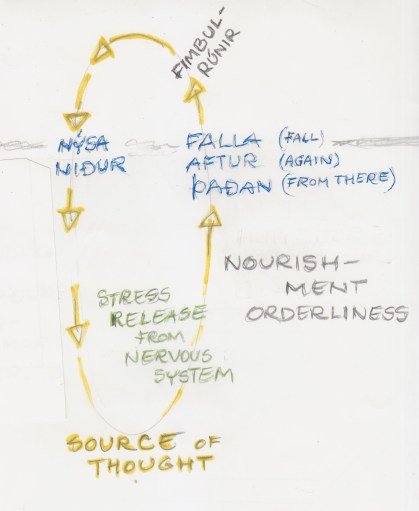 FIMBUL-
RÚNIR
NÝSA
NIÐUR
FALLA (FALL)
AFTUR (AGAIN)
ÞAÐAN (FROM THERE)
NOURISH-
MENT
ORDERLINESS
STRESS
RELEASE
FROM
NERVOUS
SYSTEM
SOURCE OF
THOUGHT